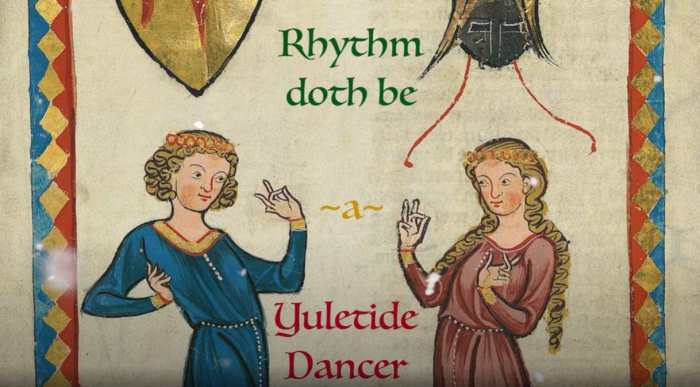 Rhythm
doth be
~a~
Yuletide
Dancer